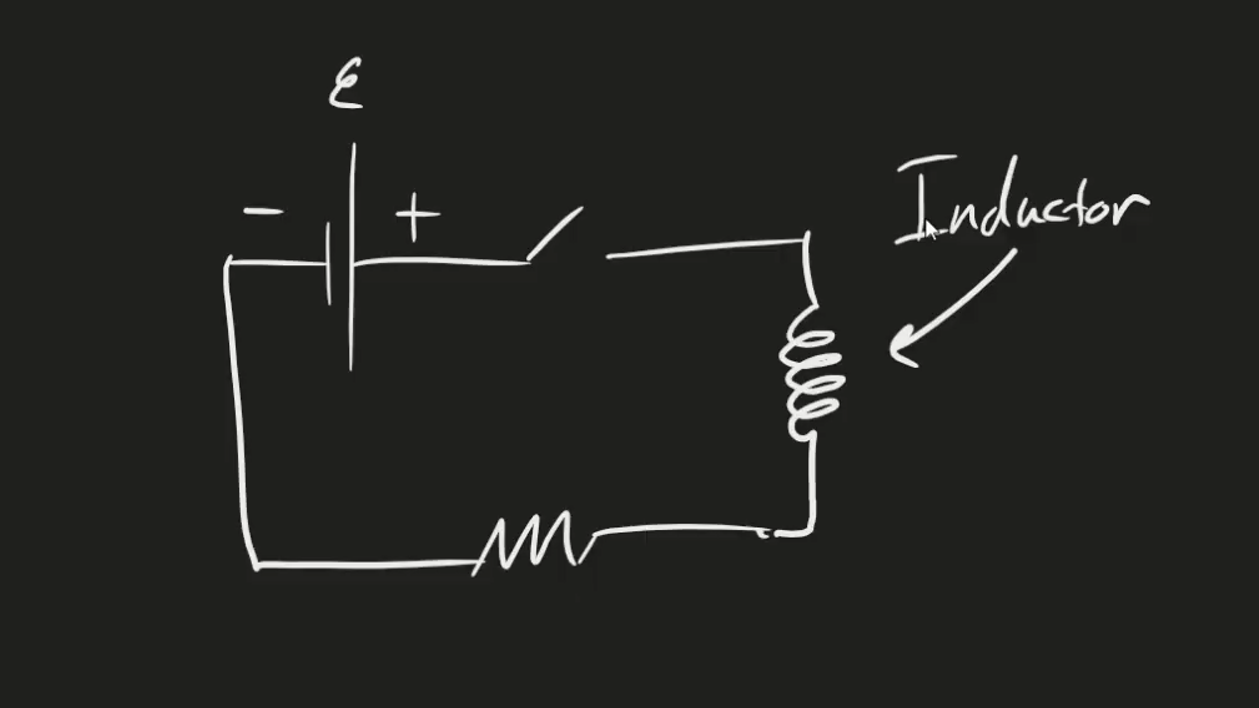 ℰ
- +
Inductor